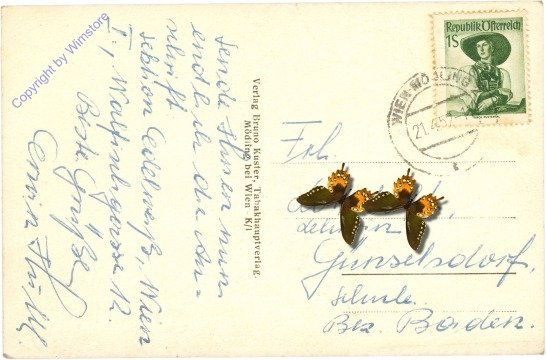 Copyright by Wimstore
Sende Ihnen nun
endlich die An-
schrift
Sektion Edelweiß, Wien
I., Walfischgasse 12.
Beste Grüße
Verlag Bruno Kuster, Tabakhauptverlag.
Mödling bei Wien K/1
Republik Österreich
1S
WIEN-MÖDLING
21.
Frl.
Günselsdorf,
Schule.
Bez. Baden.